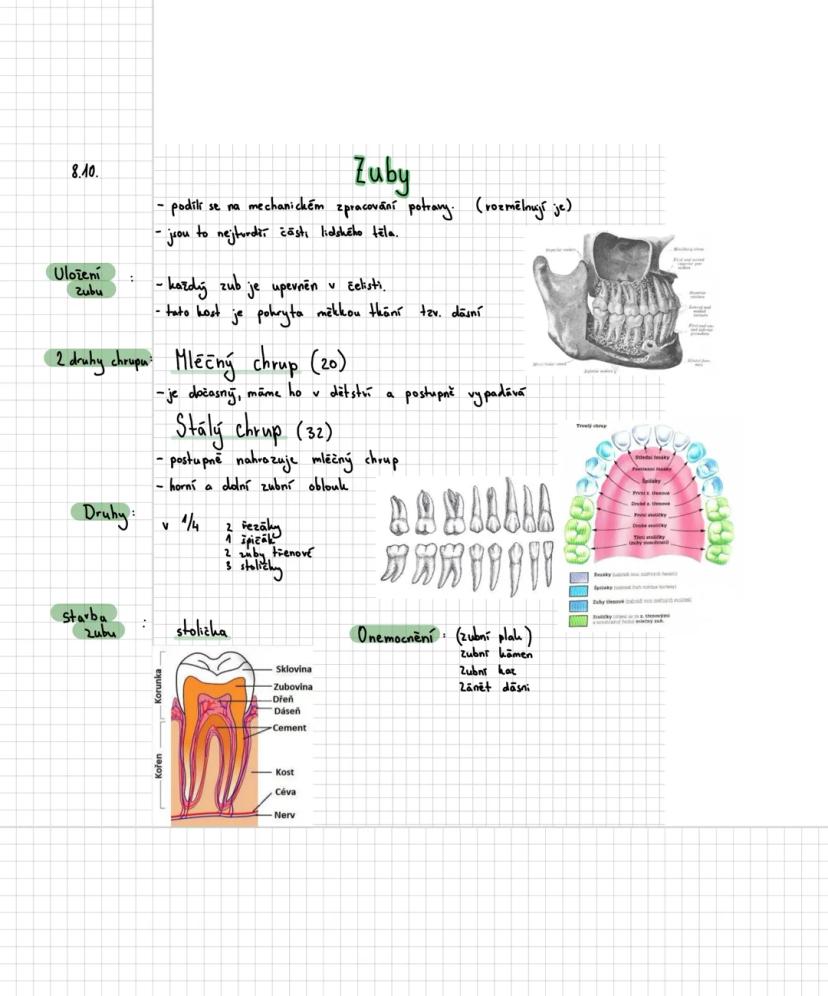 8.10.
Zuby
- podílí se na mechanickém zpracování potravy. (rozmělnují je)
- jsou to nejtvrdší části lidského těla.
Uložení zubu :
- každý zub je upevněn v čelisti.
- tato kost je pokryta měkkou tkání tzv. dásní
2 druhy chrupu:
Mléčný chrup (20)
- je dočasný, máme ho v dětství a postupně vypadává
Stálý chrup (32)
- postupně nahrazuje mléčný chrup
- horní a dolní zubní oblouk
Trvalý chrup
Střední řezáky
Postranní řezáky
Špičáky
První z. třenové
Druhé z. třenové
První stoličky
Druhé stoličky
Třetí stoličky
(zuby moudrosti)
Řezáky
Špičáky
Zuby třenové
Stoličky
Druhy:
v 1/4
2 řezáky
1 špičák
2 zuby třenové
3 stoličky
Starba
zubu :
stolička
Korunka
Kořen
Sklovina
Zubovina
Dřeň
Dáseň
Cement
Kost
Céva
Nerv
Onemocnění: (zubní plak)
zubní kámen
Zubní kaz
Zánět dásní